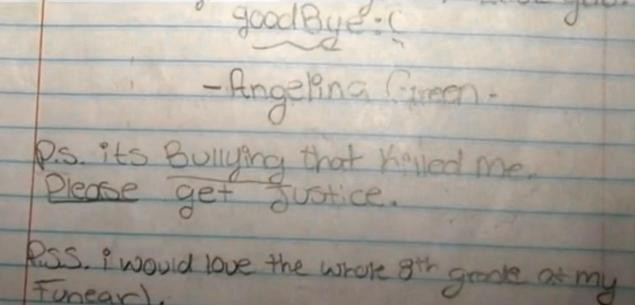 goodBye :(
-Angelina Green-
P.s. its Bullying that killed me.
Please get Justice.
P.SS. i would love the whole 8th grade at my
Funearl.